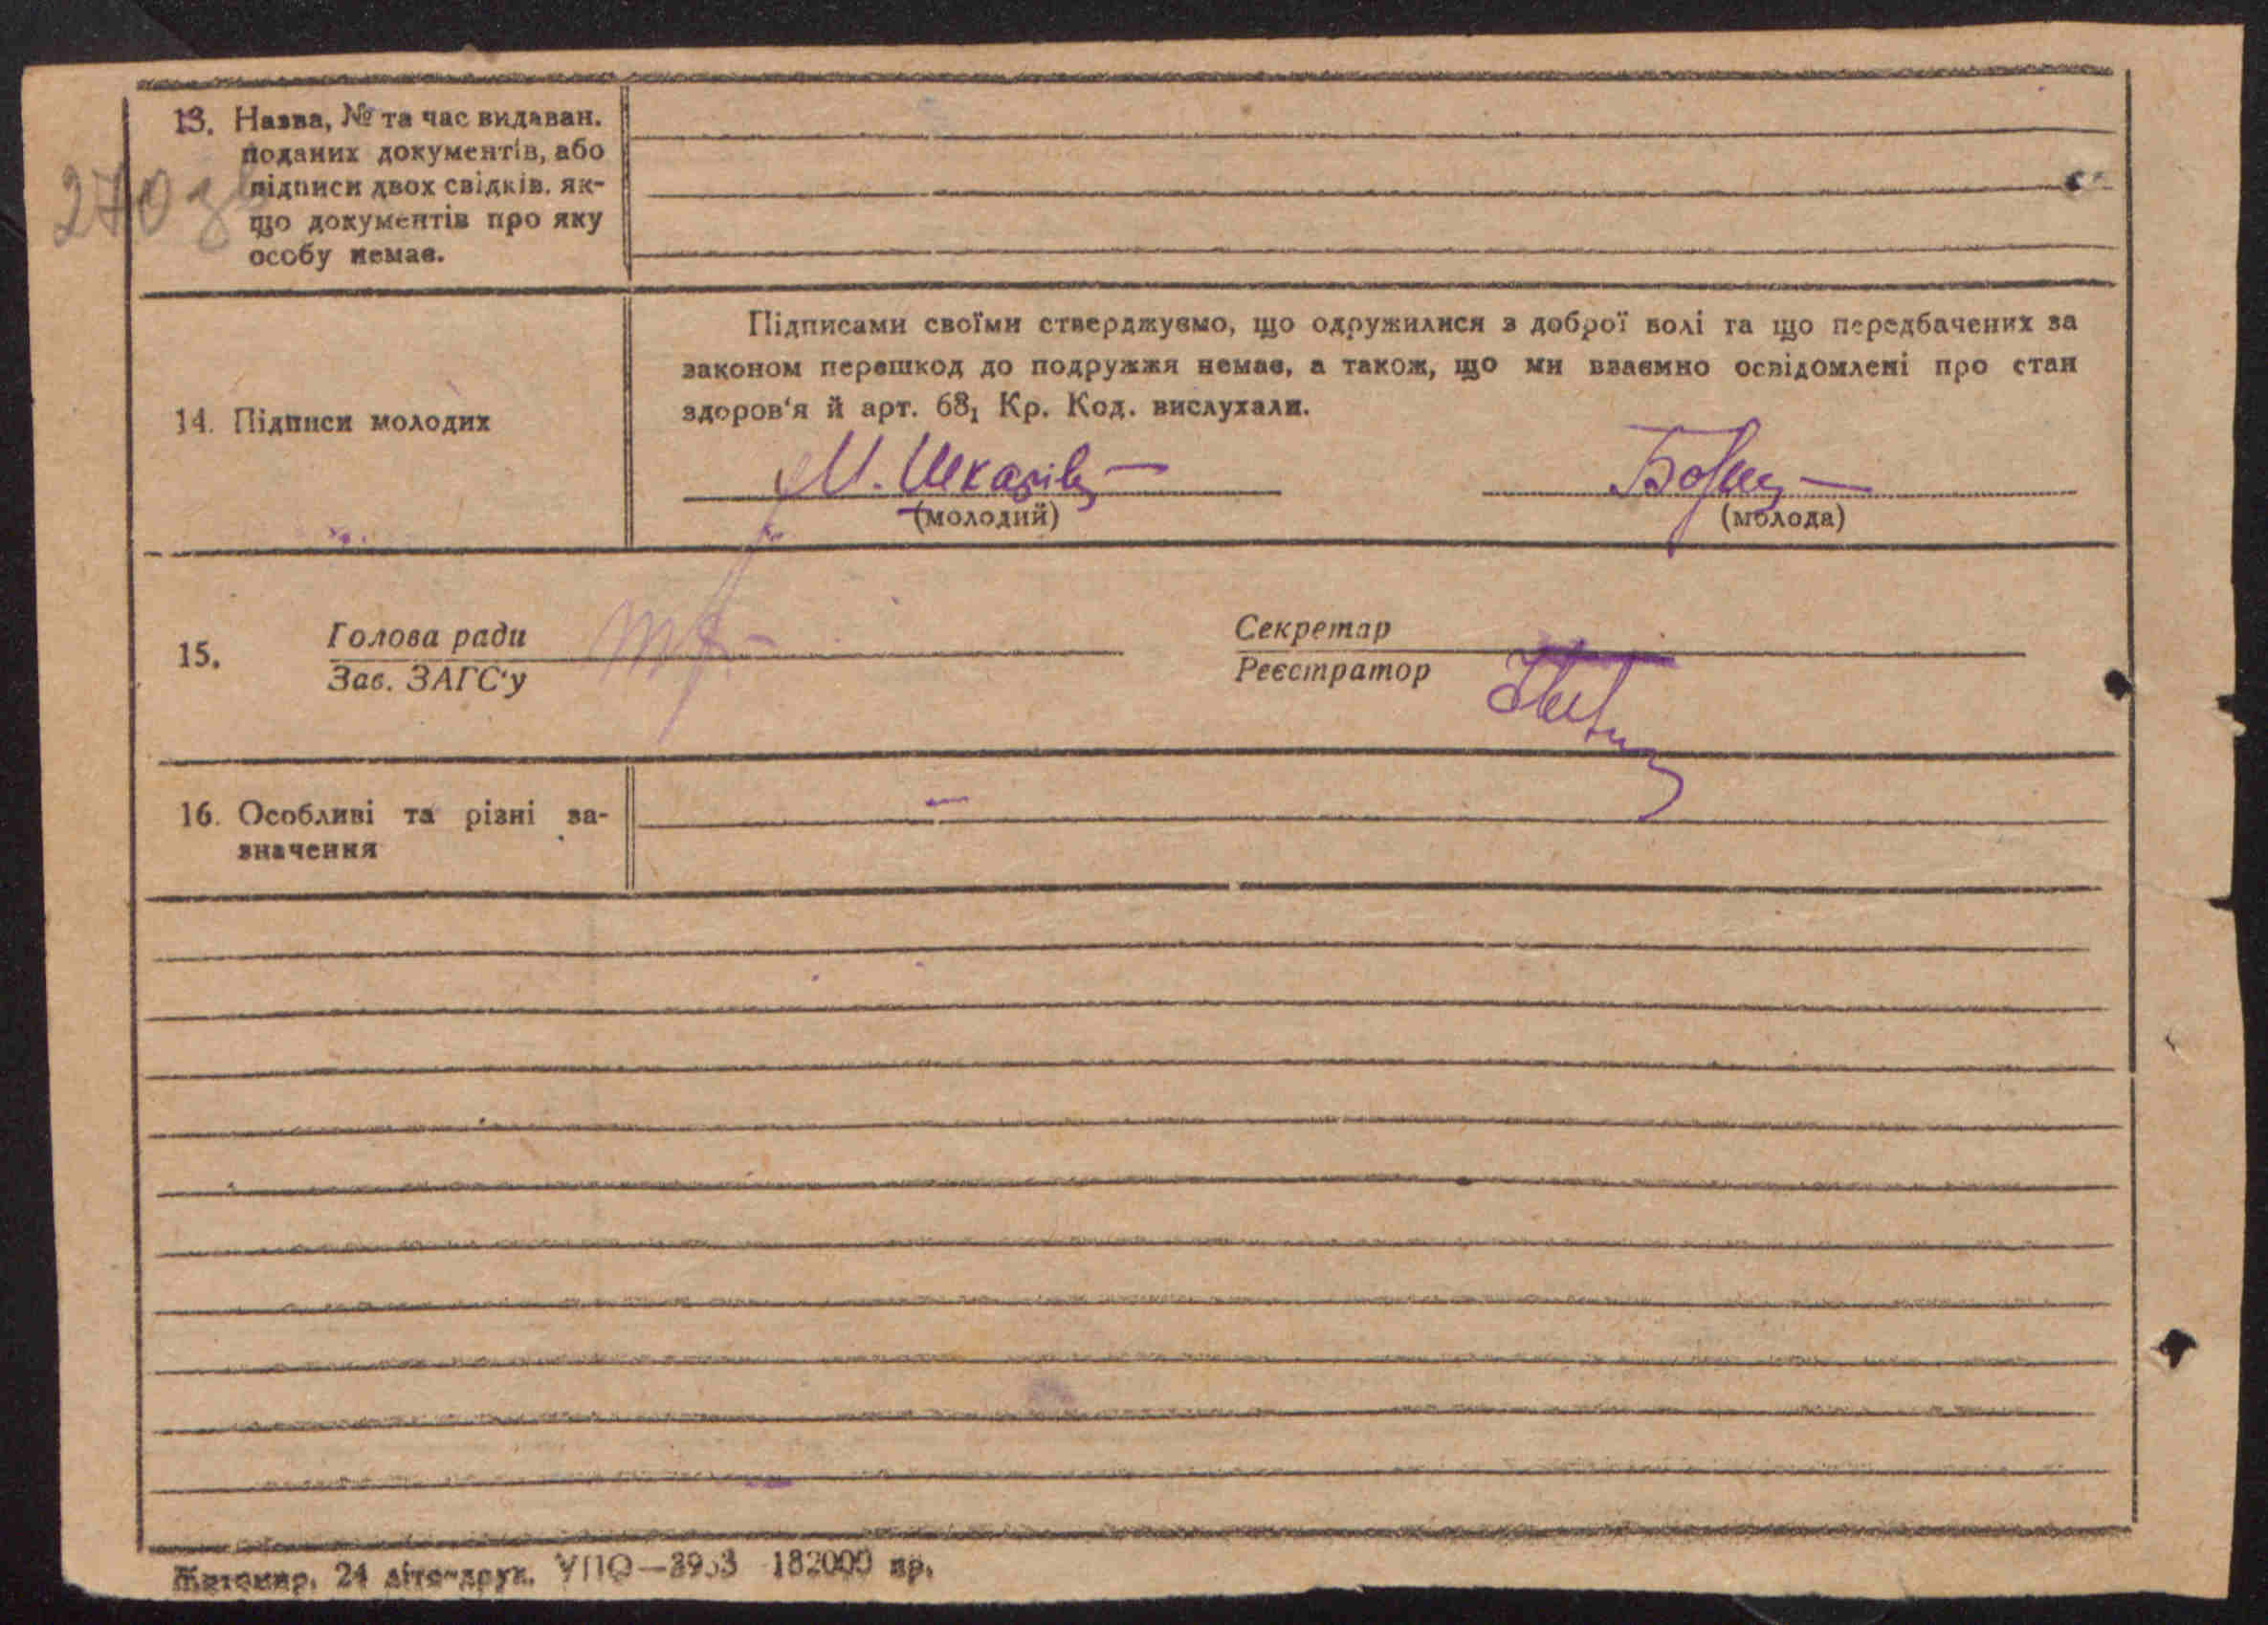 13. Назва, № та час видаван.
поданих документів, або
підписи двох свідків, як-
що документів про яку
особу немає.
270 зв
Підписами своїми стверджуємо, що одружилися з доброї волі та що передбачених за
законом перешкод до подружжя немає, а також, що ми взаємно освідомлені про стан
здоров'я й арт. 68₁ Кр. Код. вислухали.
14. Підписи молодих
М.
(молодий) (молода)
15. Голова ради Секретар
Зав. ЗАГС'у Реєстратор
16. Особливі та різні за-
значення
Житомир. 24 літо-друк. УПО— 182000 пр.